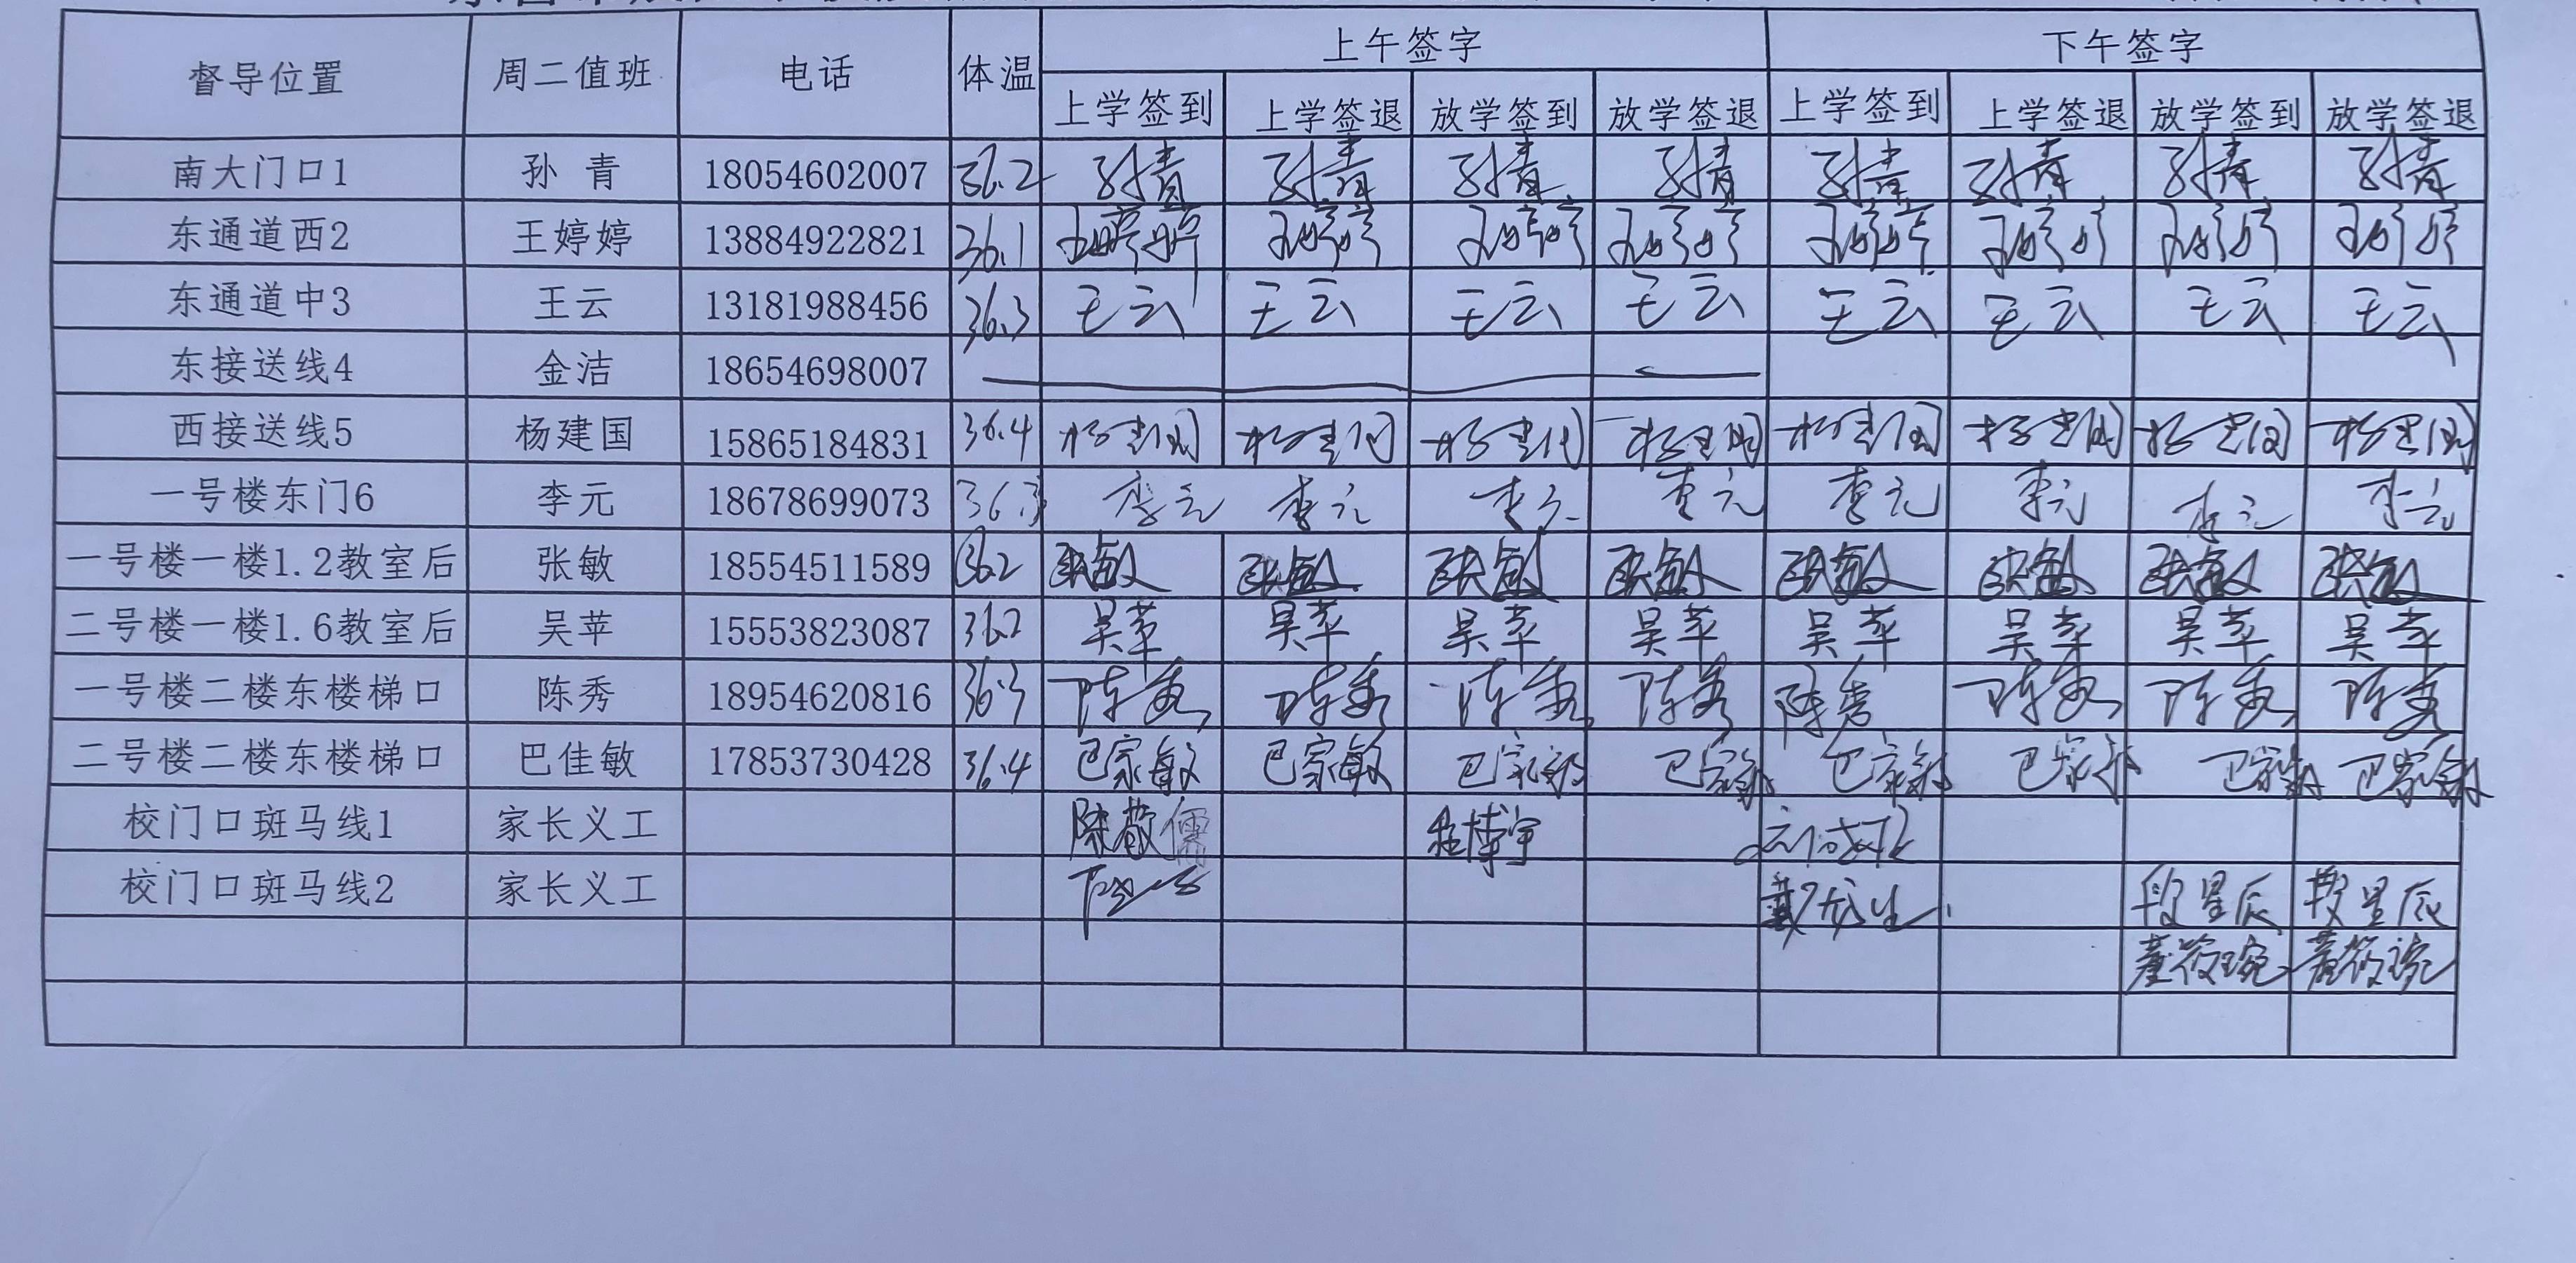 上午签字 下午签字
督导位置 周二值班 电话 体温
上学签到 上学签退 放学签到 放学签退 上学签到 上学签退 放学签到 放学签退
南大门口1 孙 青 18054602007 36.2 孙青 孙青 孙青 孙青 孙青 孙青 孙青 孙青
东通道西2 王婷婷 13884922821 36.1 王婷婷 王婷婷 王婷婷 王婷婷 王婷婷 王婷婷 王婷婷 王婷婷
东通道中3 王云 13181988456 36.3 王云 王云 王云 王云 王云 王云 王云 王云
东接送线4 金洁 18654698007
西接送线5 杨建国 15865184831 36.4 杨建国 杨建国 杨建国 杨建国 杨建国 杨建国 杨建国 杨建国
一号楼东门6 李元 18678699073 36.3 李元 李元 李元 李元 李元 李元 李元 李元
一号楼一楼1.2教室后 张敏 18554511589 36.2 张敏 张敏 张敏 张敏 张敏 张敏 张敏 张敏
二号楼一楼1.6教室后 吴苹 15553823087 36.2 吴苹 吴苹 吴苹 吴苹 吴苹 吴苹 吴苹 吴苹
一号楼二楼东楼梯口 陈秀 18954620816 36.3 陈秀 陈秀 陈秀 陈秀 陈秀 陈秀 陈秀 陈秀
二号楼二楼东楼梯口 巴佳敏 17853730428 36.4 巴家敏 巴家敏 巴家敏 巴家敏 巴家敏 巴家敏 巴家敏 巴家敏
校门口斑马线1 家长义工 陈敬儒 程博宇
校门口斑马线2 家长义工 段星辰 段星辰
董筱琬 董筱琬